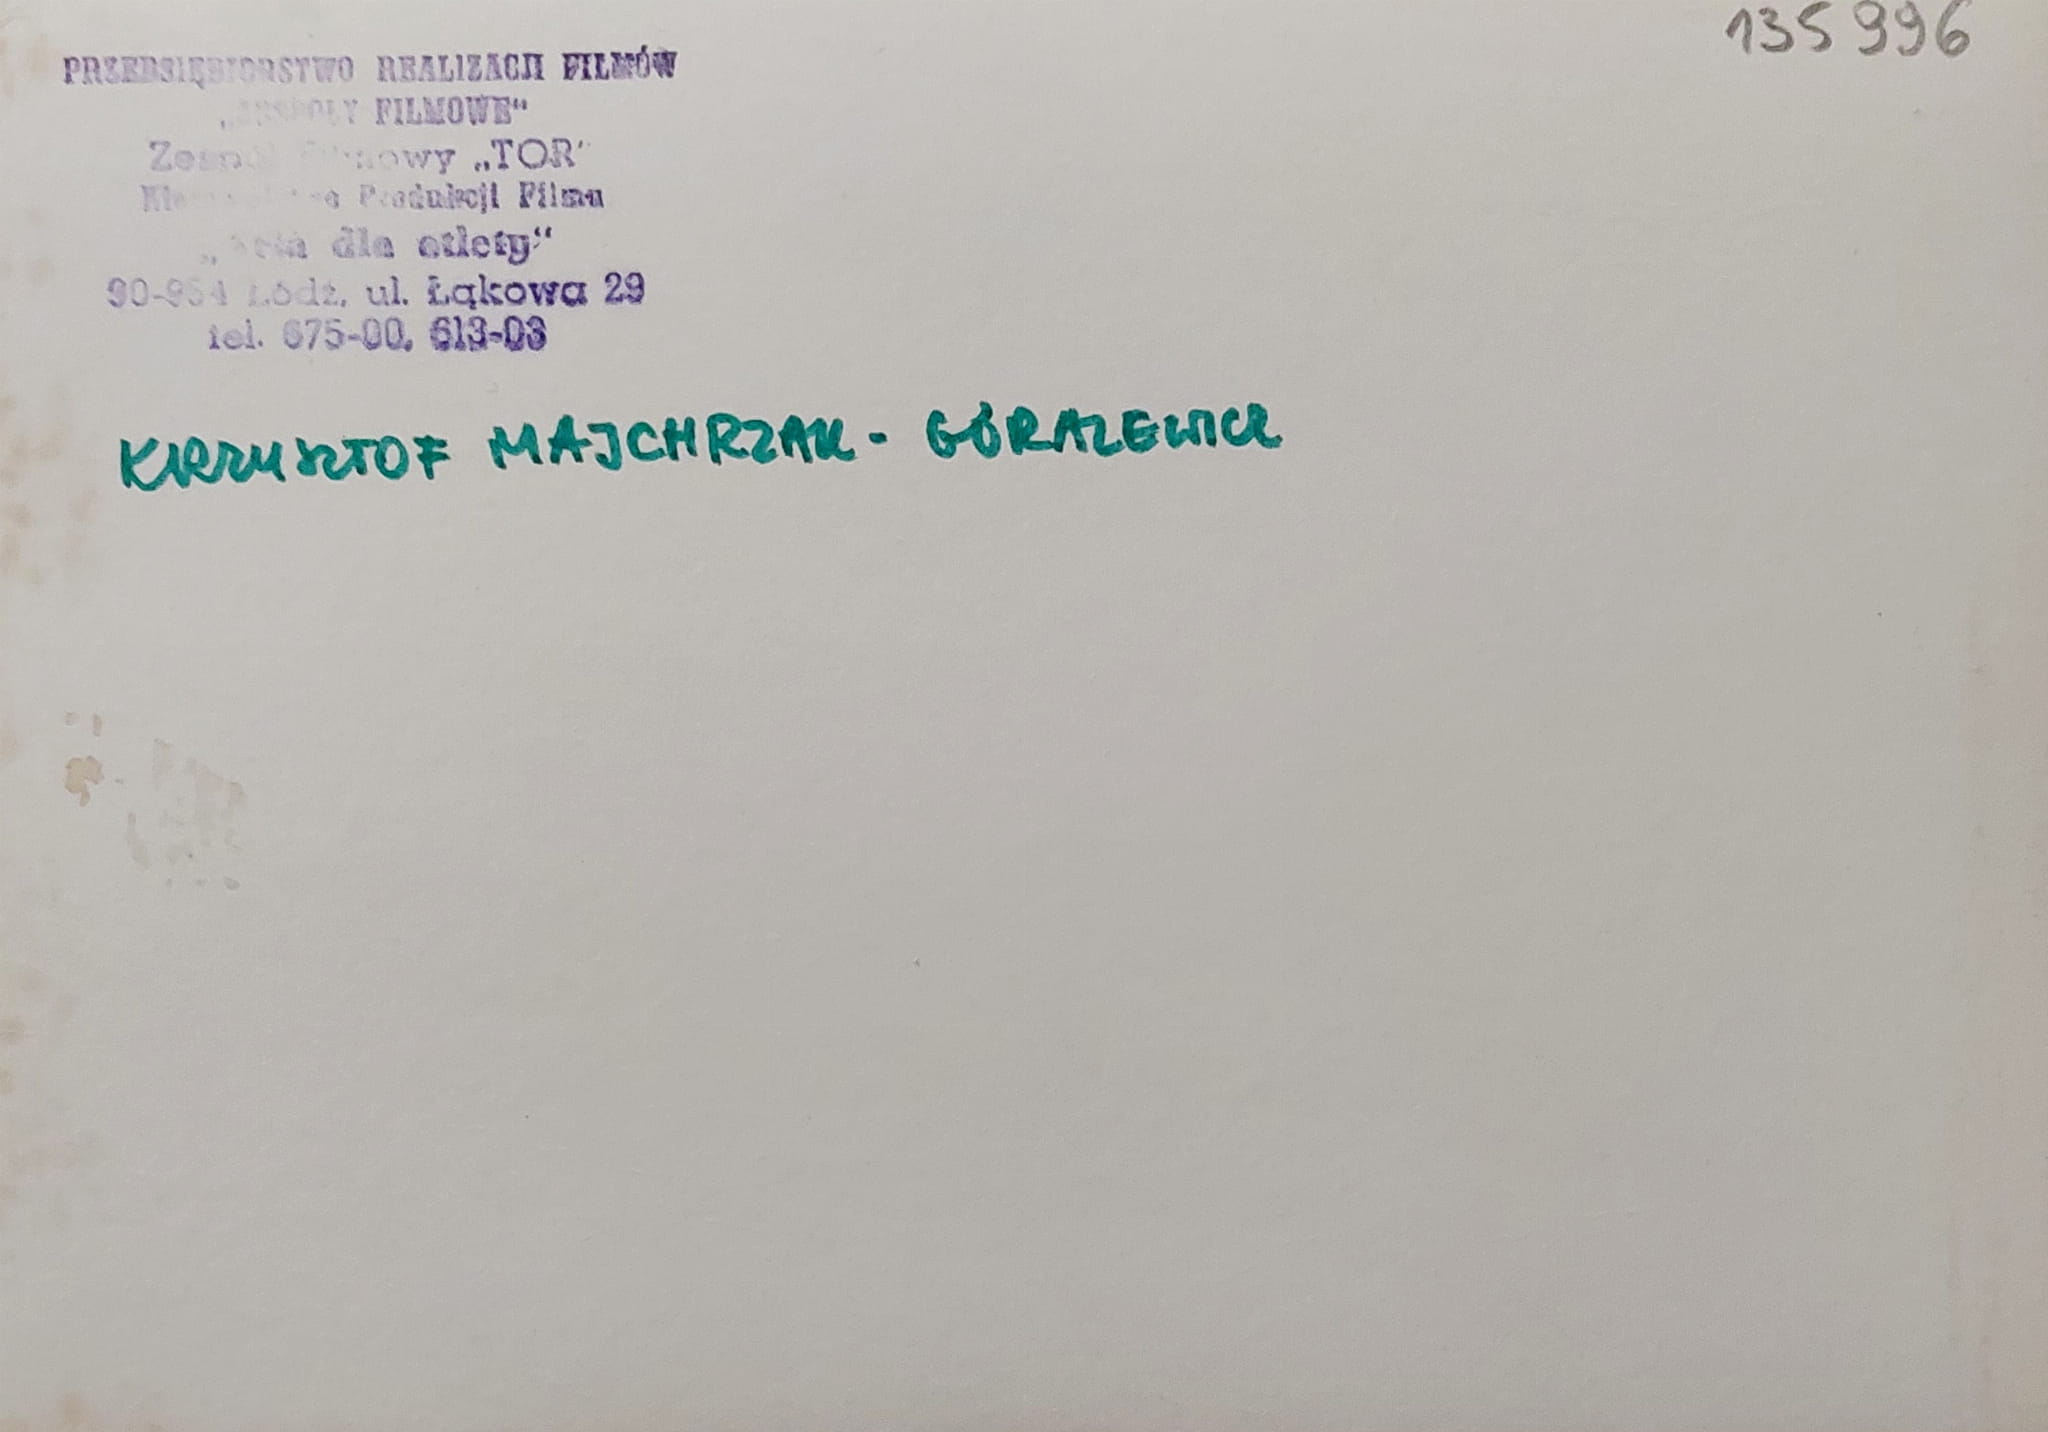 135996
PRZEDSIĘBIORSTWO REALIZACJI FILMÓW
„ZESPOŁY FILMOWE“
Zespół Filmowy „TOR"
Kierownictwo Produkcji Filmu
„Aria dla atlety“
90-954 Łódź, ul. Łąkowa 29
tel. 675-00, 613-03
KRZYSZTOF MAJCHRZAK - GÓRALEWICZ